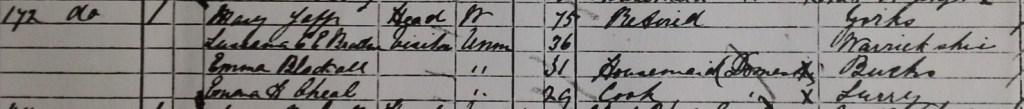 172 do 1 Mary Head W 75 Retired Yorks
E Visitor Unm 36 Warrickshire
Emma Blackall " 31 Housemaid Domestic Bucks
Emma H Cheal " 29 Cook " X Surry